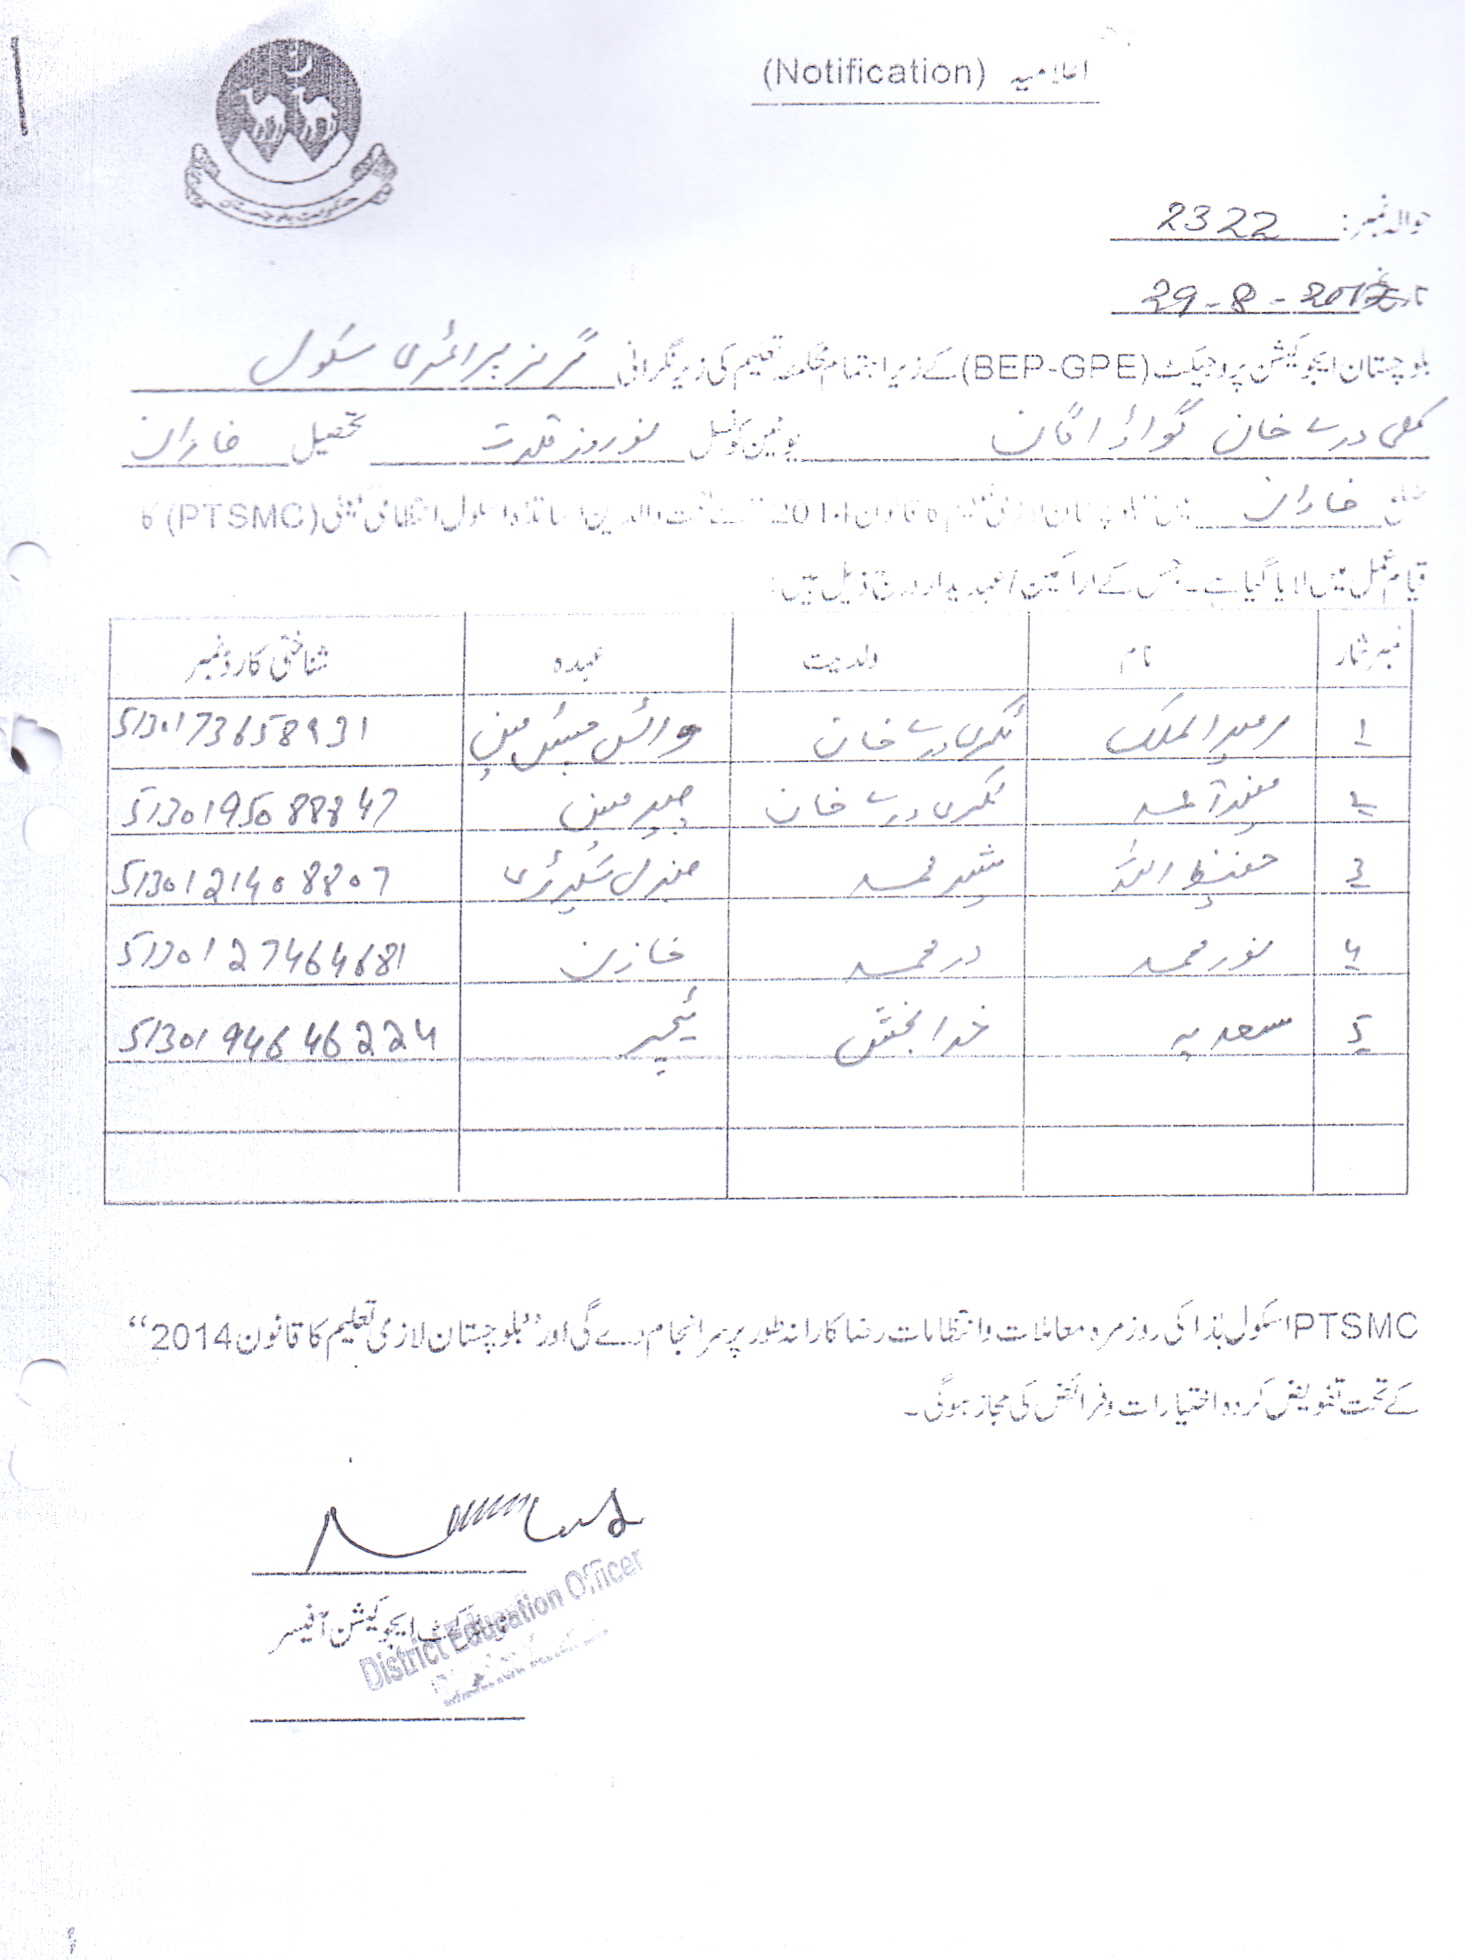 اعلامیہ (Notification)
حکومت بلوچستان
حوالہ نمبر: 2322
تاریخ 29-8-201
بلوچستان ایجوکیشن پروجیکٹ (BEP-GPE) کے زیر اہتمام محکمہ تعلیم کی زیر نگرانی گرلز پرائمری سکول
کلی درے خان گواڑاگان یونین کونسل نوروز قلات تحصیل خاران
ضلع خاران میں بلوچستان لازمی تعلیم کا قانون 2014 کے تحت والدین اساتذہ اسکول انتظامی کمیٹی (PTSMC) کا
قیام عمل میں لایا گیا ہے۔ جس کے اراکین/عہدیدار درج ذیل ہیں:
نمبر شمار نام ولدیت عہدہ شناختی کارڈ نمبر
1 درے خان وائس چیئرمین 5130173658931
2 درے خان چیئرمین 5130195088847
3 حفیظ اللہ شیر محمد جنرل سیکرٹری 5130121408807
4 نور محمد در محمد خازن 5130127464681
5 سعدیہ خدا بخش ٹیچر 5130194646224
PTSMC اسکول ہذا کی روزمرہ معاملات و انتظامات رضا کارانہ طور پر سرانجام دے گی اور "بلوچستان لازمی تعلیم کا قانون 2014"
کے تحت تفویض کردہ اختیارات و فرائض کی مجاز ہوگی۔
ڈسٹرکٹ ایجوکیشن آفیسر
District Education Officer